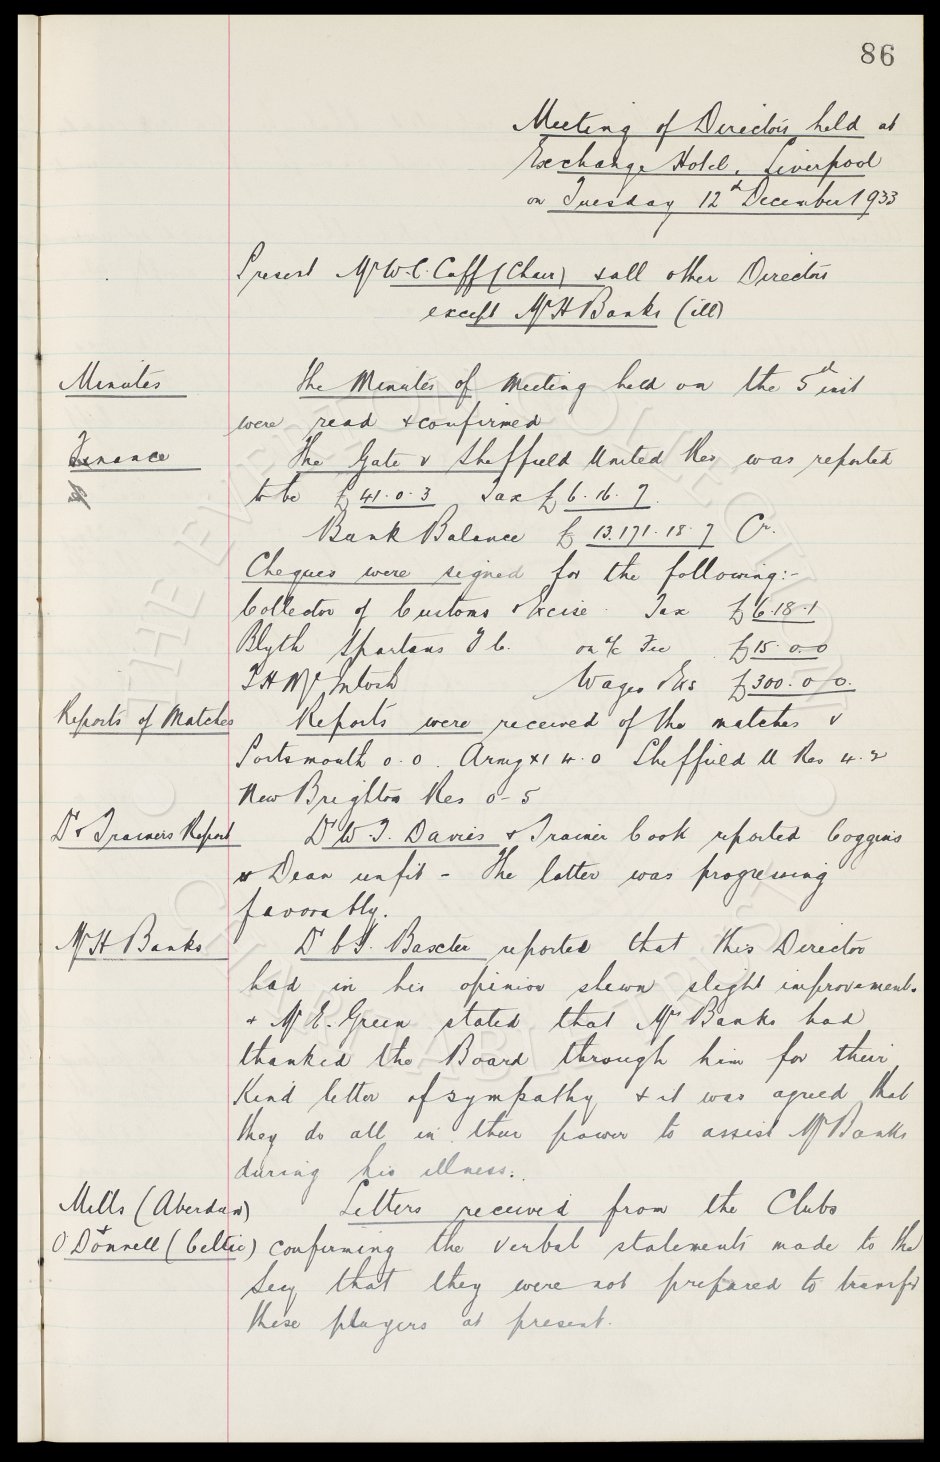 86
Meeting of Directors held at
Exchange Hotel, Liverpool
on Tuesday 12th December 1933
Present Mr W.C. Cuff (Chair) & all other Directors
except Mr H Banks (ill)
Minutes The Minutes of Meeting held on the 5th inst
were read & confirmed
Finance The Gate v Sheffield United Res was reported
to be £41.0.3 Tax £6.16.7.
Bank Balance £13.171.18.7 Cr.
Cheques were signed for the following:-
Collector of Customs & Excise. Tax £6.18.1
Blyth Spartans F C. on a/c Fee £15.0.0
T H McIntosh Wages & Exs £300.0.0.
Reports of Matches Reports were received of the matches v
Portsmouth 0.0. Army XI 4.0 Sheffield U Res 4.2
New Brighton Res 0-5
Dr & Trainers Report Dr W.T. Davies & Trainer Cook reported Coggins
& Dean unfit - The latter was progressing
favorably.
Mr H Banks Dr C.S. Baxter reported that this Director
had in his opinion shewn slight improvement.
& Mr E. Green stated that Mr Banks had
thanked the Board through him for their
Kind letter of sympathy & it was agreed that
they do all in their power to assist Mr Banks
during his illness.
Mills (Aberdeen) Letters received from the Clubs
& O'Donnell (Celtic) confirming the verbal statements made to the
Secy that they were not prepared to transfer
these players at present.
THE EVERTON COLLECTION
CHARITABLE TRUST